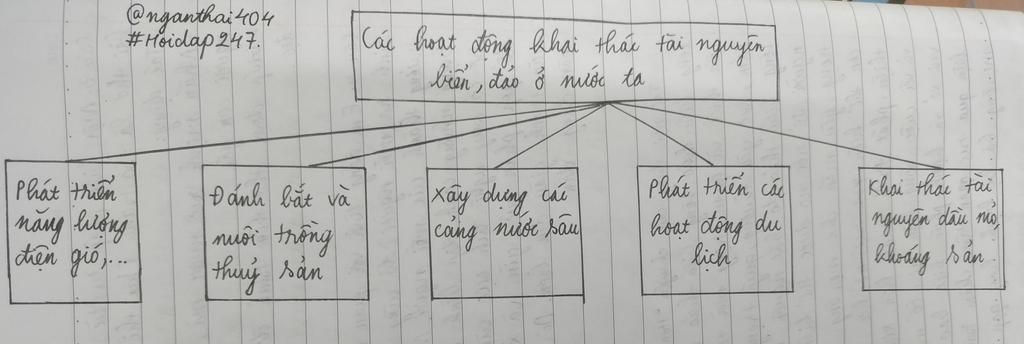 @nganthai404
#Hoidap247.
Các hoạt động khai thác tài nguyên
biển, đảo ở nước ta
Phát triển
năng lượng
điện gió,...
Đánh bắt và
nuôi trồng
thuỷ sản
Xây dựng các
cảng nước sâu
Phát triển các
hoạt động du
lịch
Khai thác tài
nguyên dầu mỏ,
khoáng sản.